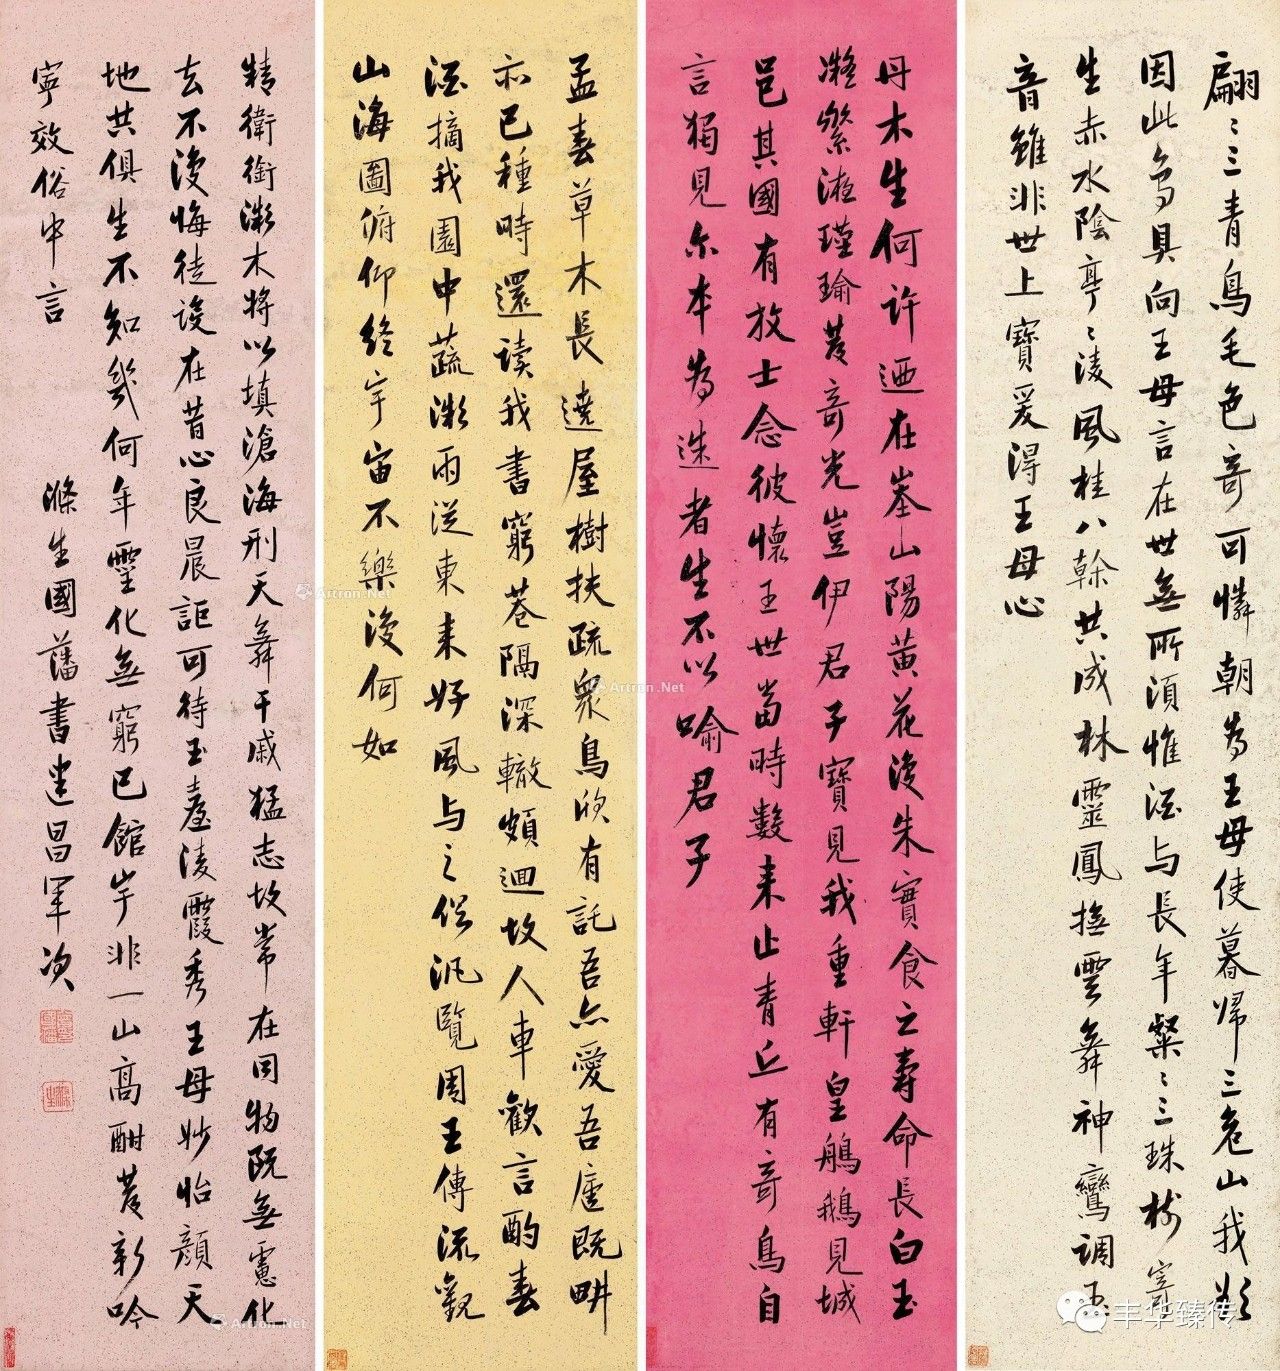 翩〻三青鳥毛色奇可憐朝為王母使暮歸三危山我欲
因此鳥具向王母言在世無所須惟酒与長年粲〻三珠樹寄
生赤水陰亭〻凌風桂八榦共成林靈鳳撫雲舞神鸞調玉
音雖非世上寶爰得王母心
丹木生何許迺在峚山陽黃花復朱實食之壽命長白玉
凝素液瑾瑜發奇光豈伊君子寶見我重軒皇鵃鵝見城
邑其國有放士念彼懷王世當時數来止青丘有奇鳥自
言獨見尔本為迷者生不以喻君子
孟春草木長遶屋樹扶疏眾鳥欣有託吾亦愛吾廬既畊
亦已種時還读我書窮巷隔深轍頗迴故人車歡言酌春
酒摘我園中蔬微雨從東来好風与之俱汎覽周王傳流觀
山海圖俯仰終宇宙不樂復何如
精衛銜微木將以填滄海刑天舞干戚猛志故常在同物既無慮化
去不復悔徒设在昔心良晨詎可待玉臺凌霞秀王母妙怡顏天
地共俱生不知幾何年靈化無窮已館宇非一山高酣發新吟
寧效俗中言
滌生國藩書建昌軍次
丰华臻传
Artron.Net
Artron.Net
Artron.Net